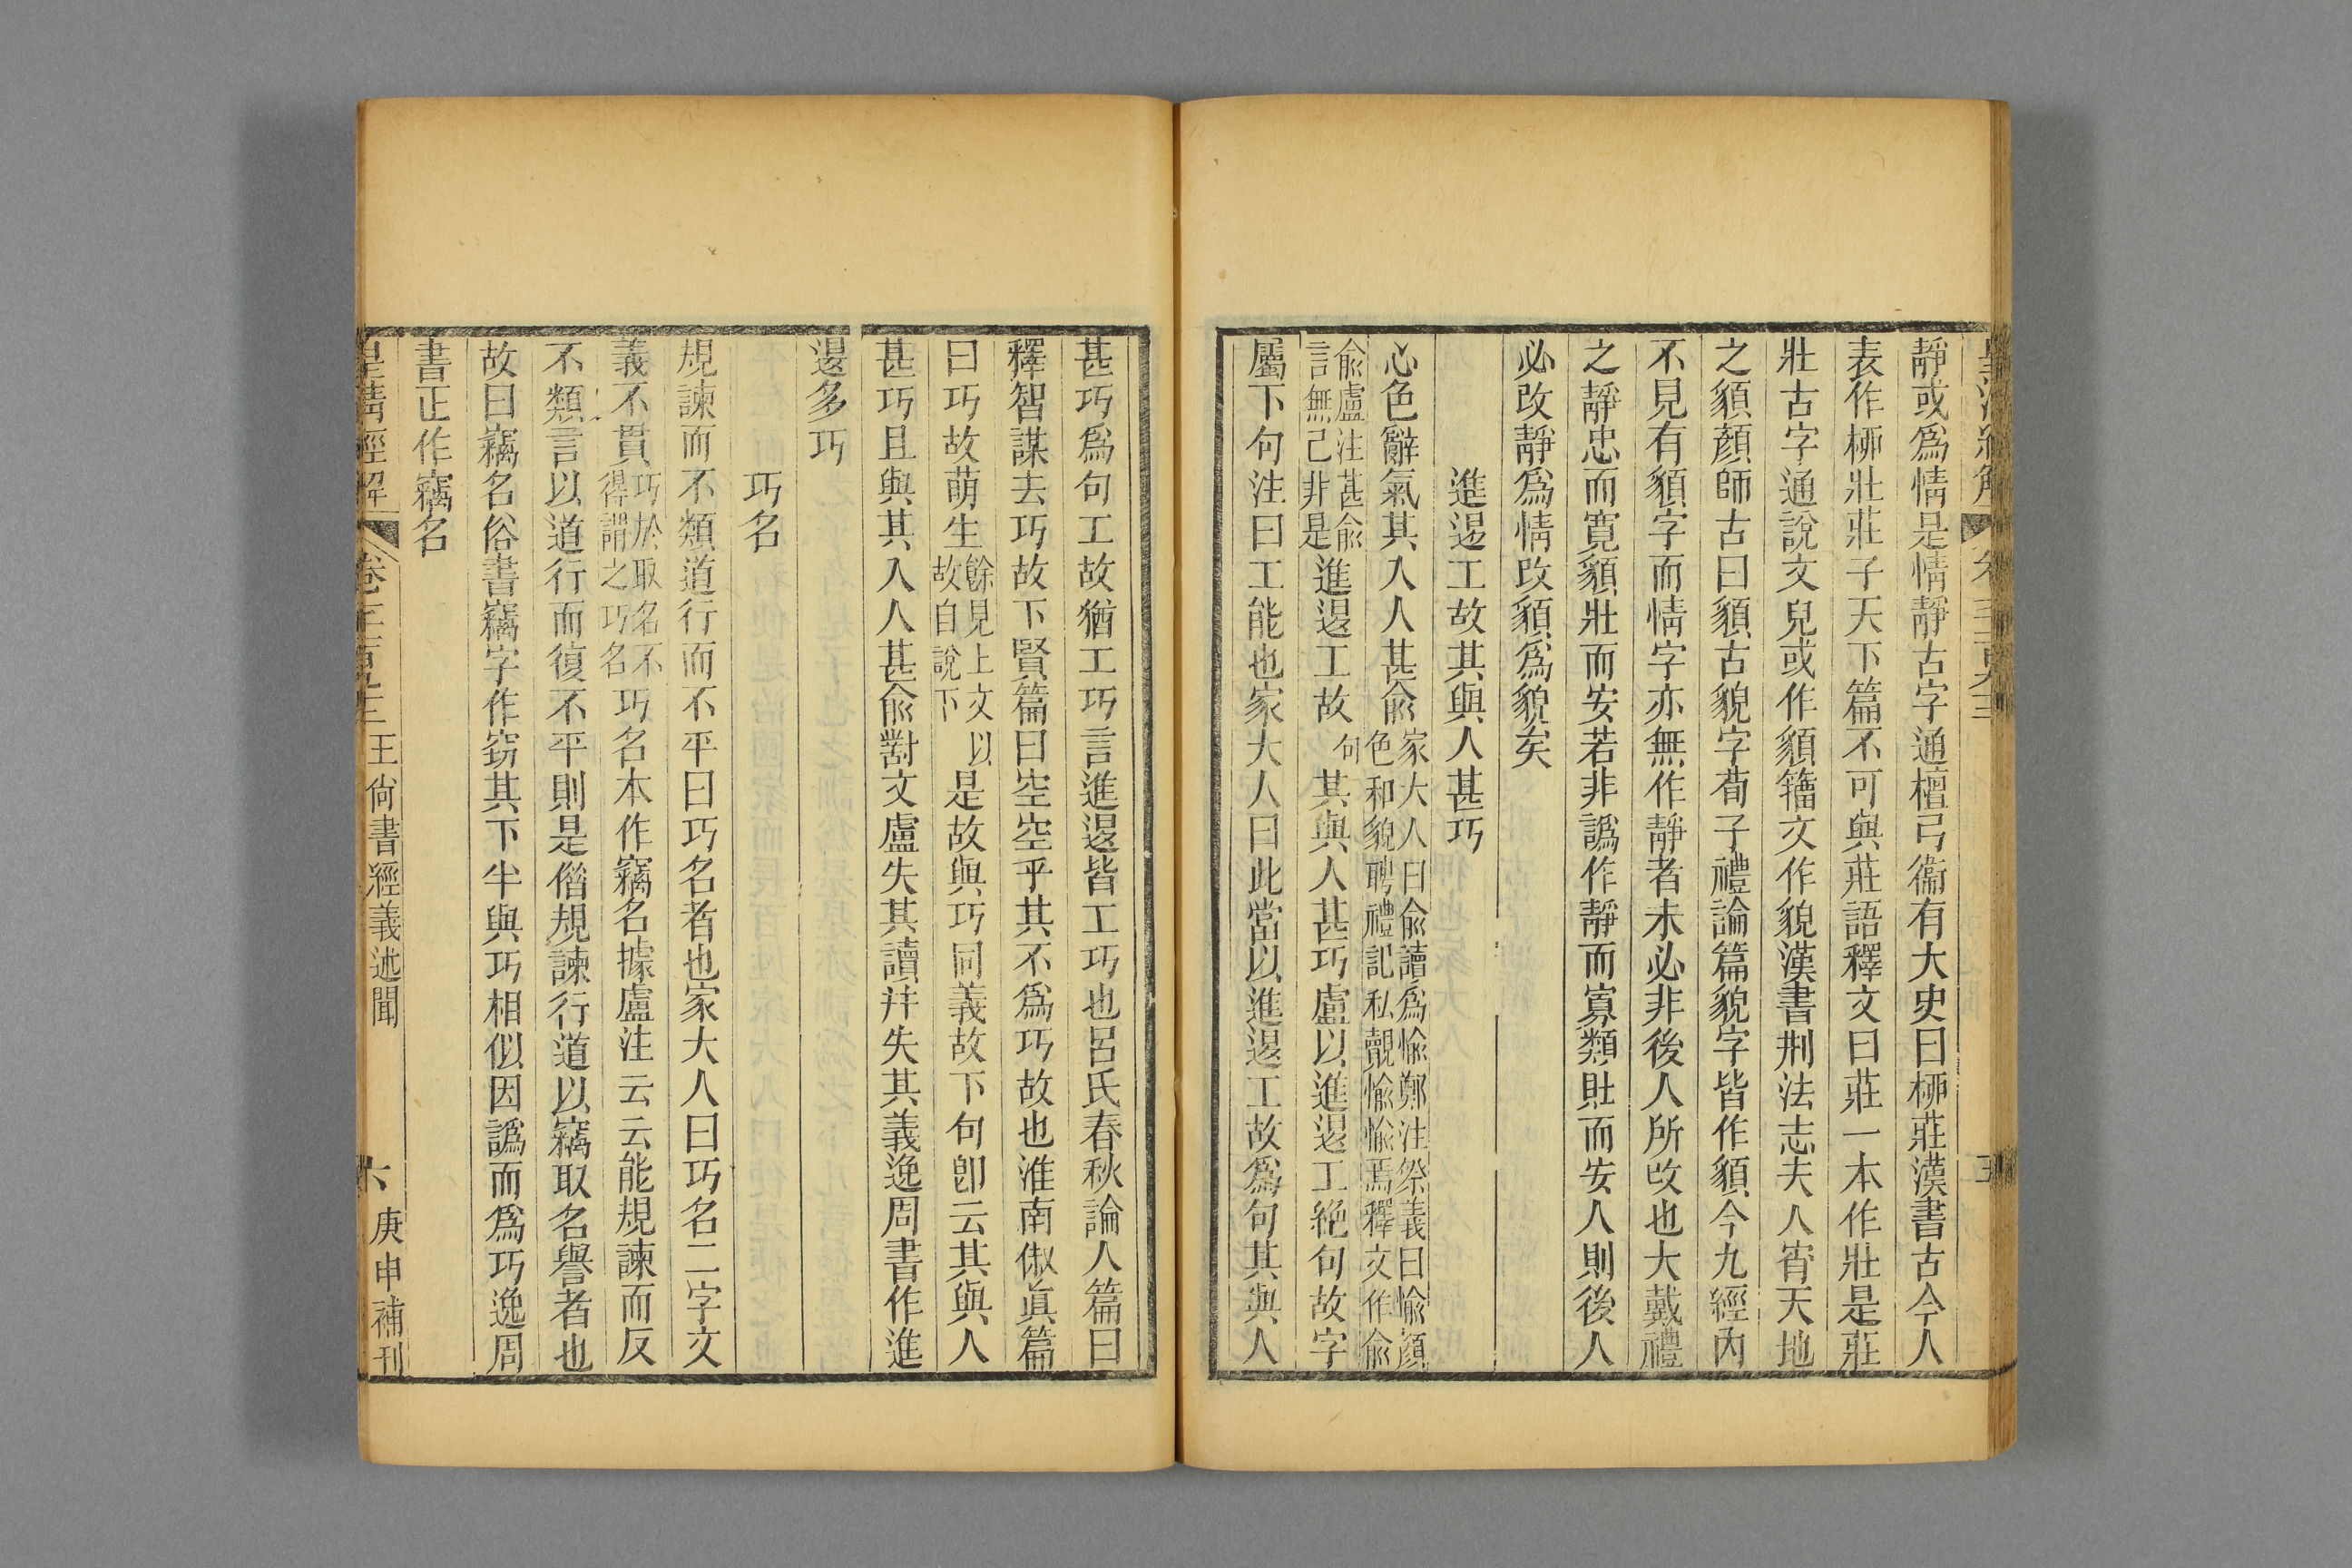 靜或爲情是情靜古字通檀弓衞有大史曰桺莊漢書古今人
表作桺壯莊子天下篇不可與莊語釋文曰莊一本作壯是莊
壯古字通說文皃或作䫉籒文作貌漢書荆法志夫人宵天地
之䫉顏師古曰䫉古貌字荀子禮論篇貌字皆作䫉今九經內
不見有䫉字而情字亦無作靜者未必非後人所改也大戴禮
之靜忠而寬䫉壯而安若非譌作靜而寡類壯而安人則後人
必改靜爲情改䫉爲貌矣
進退工故其與人甚巧
心色辭氣其入人甚俞家大人曰俞讀爲愉鄭注祭義曰愉顏
色和貌聘禮記私覿愉愉焉釋文作俞
俞盧注甚俞
言無己非是進退工故句其與人甚巧盧以進退工絶句故字
屬下句注曰工能也家大人曰此當以進退工故爲句其與人
甚巧爲句工故猶工巧言進退皆工巧也呂氏春秋論人篇曰
釋智謀去巧故下賢篇曰空空乎其不爲巧故也淮南俶眞篇
曰巧故萌生餘見上文以
故自說下是故與巧同義故下句卽云其與人
甚巧且與其入人甚俞對文盧失其讀幷失其義逸周書作進
退多巧
巧名
規諫而不類道行而不平曰巧名者也家大人曰巧名二字文
義不貫巧於取名不
得謂之巧名巧名本作竊名據盧注云云能規諫而反
不類言以道行而復不平則是偺規諫行道以竊取名譽者也
故曰竊名俗書竊字作窃其下半與巧相似因譌而爲巧逸周
書正作竊名
皇淸經解
王尙書經義述聞
六
庚申補刊